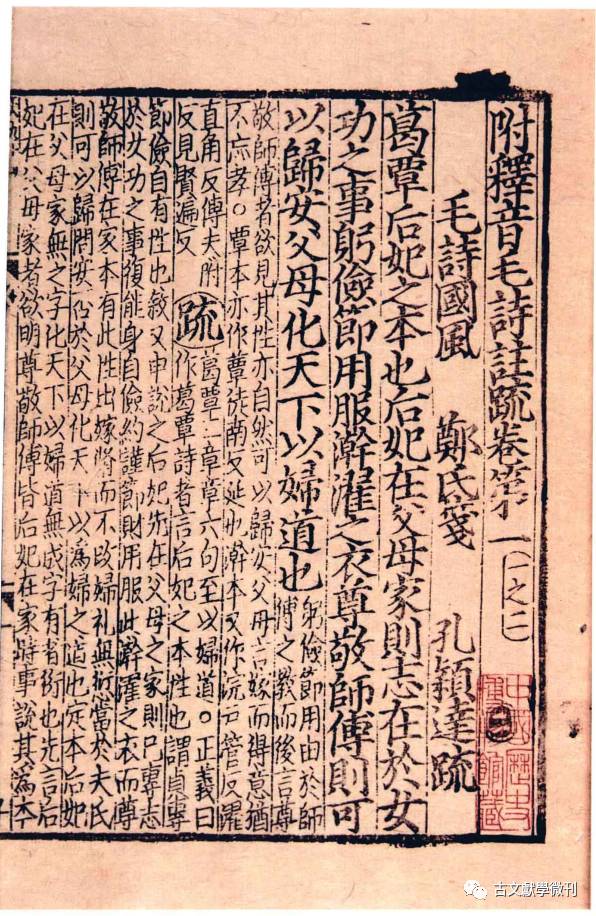 附釋音毛詩註疏卷第一(一之二)
毛詩國風　鄭氏箋　孔穎達疏
葛覃后妃之本也后妃在父母家則志在於女
功之事躬儉節用服澣濯之衣尊敬師傅則可
以歸安父母化天下以婦道也躬儉節用由於師傅之教而後言尊
敬師傅者欲見其性亦自然可以歸安父母言嫁而得意猶
不忘孝。覃本亦作蕈徒南反延也澣本又作浣戸管反濯
直角反傅夫附反見賢遍反
疏葛覃三章章六句至以婦道。正義曰作葛覃詩者言后妃之本性也謂貞專
節儉自有性也叙又申說之后妃先在父母之家則已專志
於女功之事復能身自儉約謹節財用服此澣濯之衣而尊
敬師傅在家本有此性出嫁將而不改婦礼無愆當於夫氏
則可以歸問安否於父母化天下以爲婦之道也定本后妃
在父母家無之字化天下以婦道無成字有者衍也先言后
妃在父母家者欲明尊敬師傅皆后妃在家時事說其爲本
中國歷史
館藏
古文獻學微刊